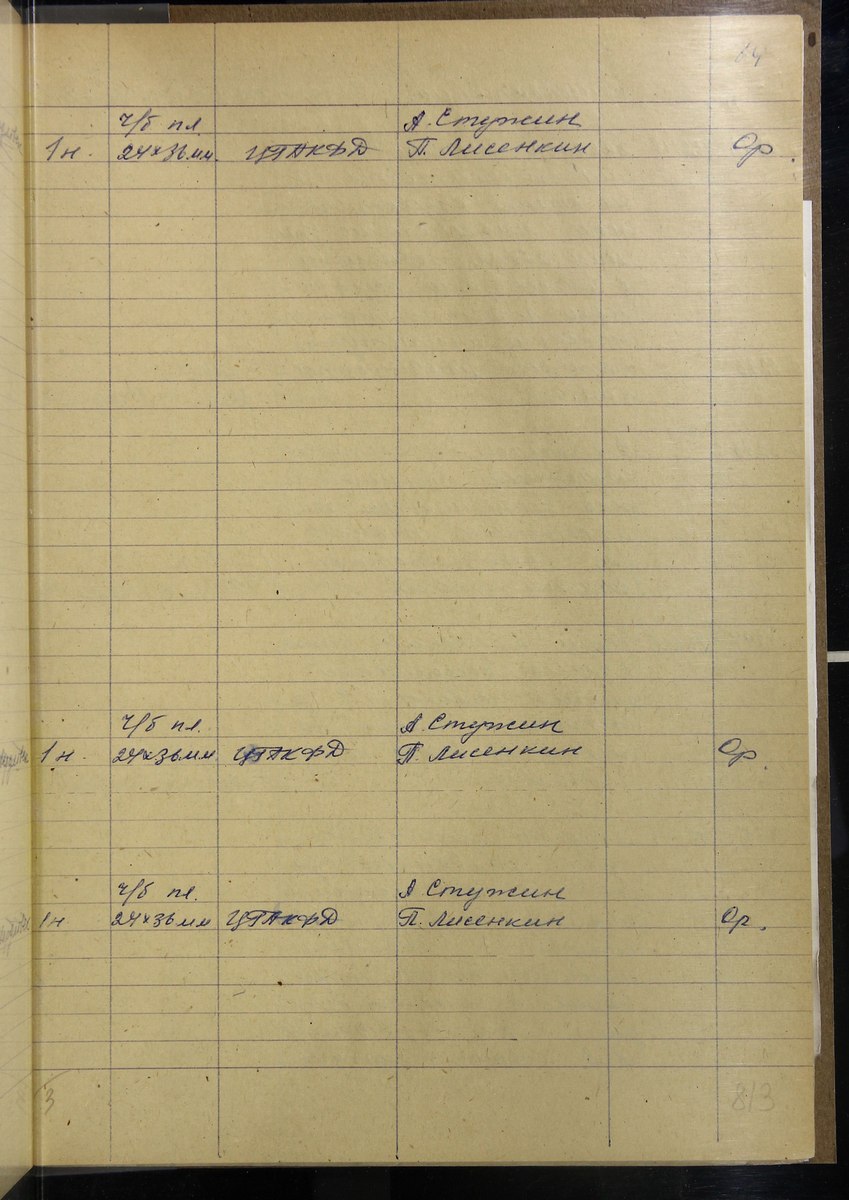 14
ч/б пл. А. Стужин
1 н. 24×36 мм. ЦГАКФД П. Лисенкин Ор.
ч/б пл. А. Стужин
1 н. 24×36 мм ЦГАКФД П. Лисенкин Ор.
ч/б пл. А Стужин
1 н 24×36 мм ЦГАКФД П. Лисенкин Ор.
3 813